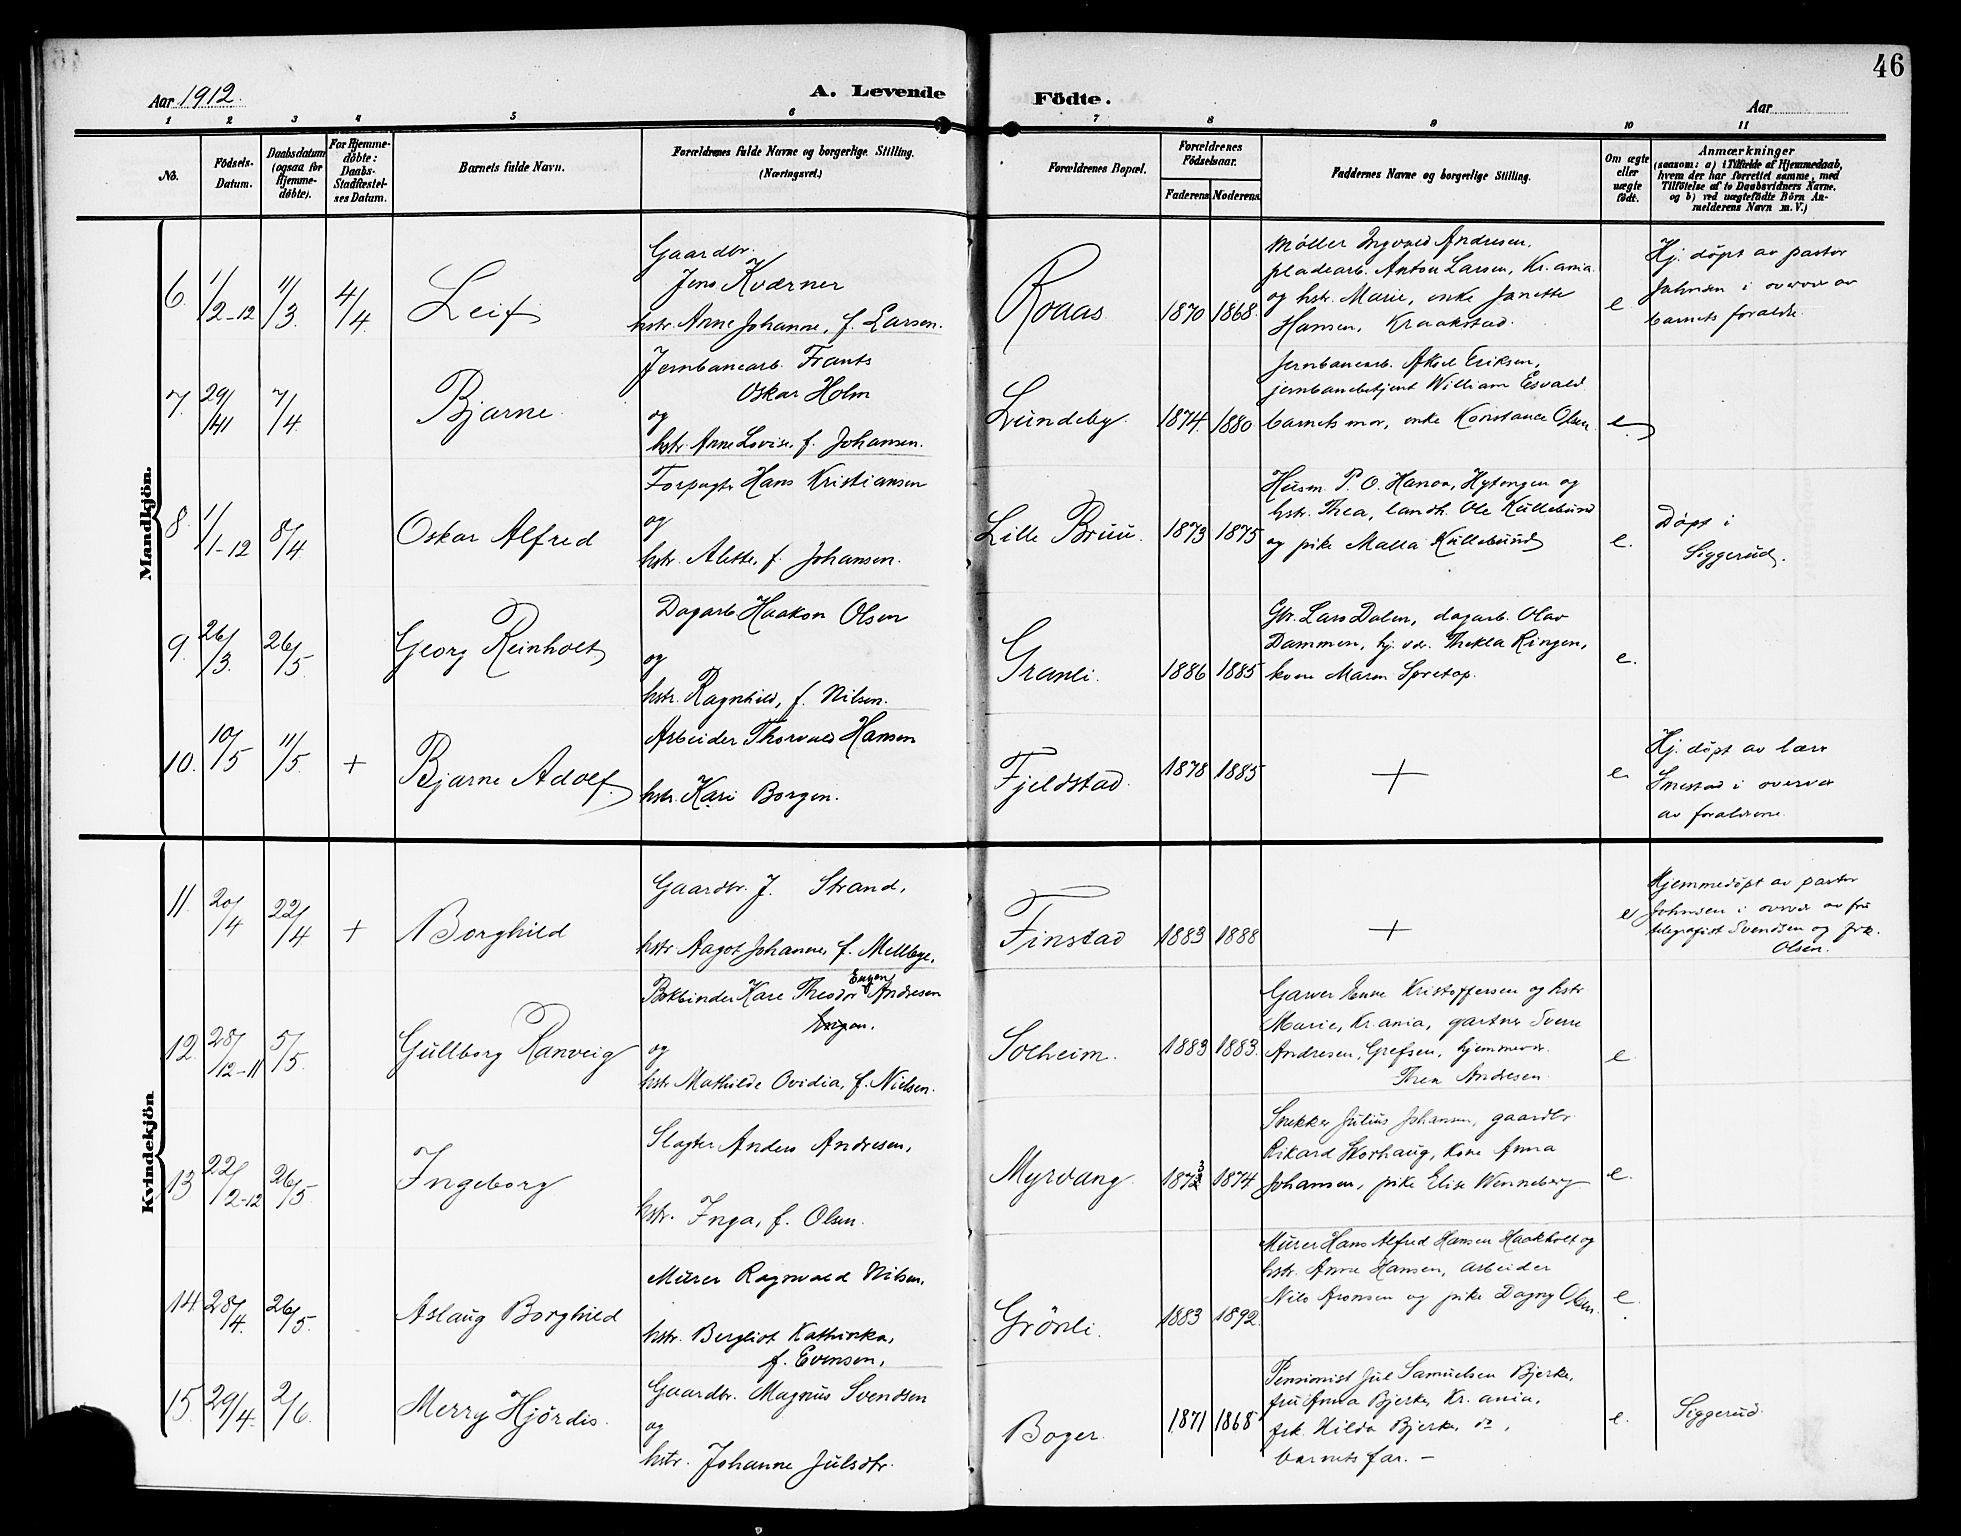 46
Aar 1912.
A. Levende Födte.
Aar
1 2 3 4 5 6 7 8 9 10 11
No.
Födsels-Datum.
Daabsdatum (ogsaa for Hjemme-döbte).
For Hjemme-döbte: Daabs-Stadfæstel-ses Datum.
Barnets fulde Navn.
Forældrenes fulde Navne og borgerlige Stilling. (Næringsvei.)
Forældrenes Bopæl.
Forældrenes Födselsaar.
Faderens Moderens
Faddernes Navne og borgerlige Stilling.
Om ægte eller uægte födt.
Anmærkninger
(saasom: a) i Tilfælde af Hjemmedaab, hvem der har forrettet samme, med Tilföielse af to Daabsvidners Navne, og b) ved uægtefödte Börn An-melderens Navn m. V.)
Mandkjön.
6. 1/2-12 11/3. 4/4 Leif
Gaardbr.
Jens Kværner
hstr. Anne Johanne, f. Larsen.
Roaas 1870 1868.
Møller Ingvald Andresen,
pladearb. Anton Larsen, Kr.ania
og hstr. Marie, enke Janette
Hansen, Kraakstad.
e
Hj. døpt av pastor
Johnsen i overvær av
barnets foraldre.
7. 29/1 41 7/4. Bjarne.
Jernbanearb. Frants
Oskar Holm
og
hstr. Anne Lovise, f. Johansen.
Lundeby. 1874. 1880
Jernbanearb. Aksel Eriksen,
jernbanebetjent William Esvald
barnets mor, enke Konstance Olsen
e.
8. 1/1-12 8/4 Oskar Alfred
Forpagter Hans Kristiansen
og
hstr. Alette, f. Johansen.
Lille Bruu. 1873 1875
Husm. P. O. Hanoa, Hytengen og
hstr. Thea, landh. Ole Kullebund
og pike Malla Kullebund
e.
Døpt i
Siggerud.
9. 26/3. 26/5. Georg Reinholt
Dagarb. Haakon Olsen
og
hstr. Ragnhild, f. Nilsen.
Granli. 1886 1885
Gbr. Lars Dalen, dagarb. Olav
Dammen, hj.vær. Thekla Ringen,
kone Maren Spretop.
e.
10. 10/5 11/5. + Bjarne Adolf.
Arbeider Thorvald Hansen
hstr. Kari Borgen.
Fjeldstad. 1878 1885
+
e.
Hj. døpt av lærer
Smestad i overvær
av foraldrene.
Kvindekjön
11. 20/4 22/4 + Borghild
Gaardbr. J. Strand,
hstr. Aagot Johanne, f. Mellbye.
Finstad 1883 1888
+
e
Hjemmedøpt av pastor
Johnsen i overvær av fru
telegrafist Svendsen og frk.
Olsen.
12. 28/12-11 5/5. Gullborg Ranveig
Bokbinder Kare Theodor Engen Andresen
og
hstr. Mathilde Ovidia, f. Nielsen.
Solheim. 1883 1883.
Garver Enne Kristoffersen og hstr.
Marie, Kr.ania, gartner Sverre
Andresen, Grefsen, hjemmevær.
Thea Andresen.
e
13 22/2-12 26/5. Ingeborg
Slagter Anders Andresen,
hstr. Inga, f. Olsen.
Myrvang. 1873 1874
Snekker Julius Johansen, gaardbr.
Rikard Skorhaug, kone Anna
Johansen, pike Elise Wenneberg
e.
14. 28/4. 26/5. Aslaug Borghild
Murer Ragnvald Nilsen,
hstr. Bergliot Kathinka,
f. Evensen,
Grönli. 1883 1892.
Murer Hans Alfred Hansen Haakholt og
hstr. Anne Hansen, arbeider
Nils Aronsen og pike Dagny Olsen.
e.
15. 29/4. 2/6. Merry Hjørdis.
Gaardbr. Magnus Svendsen
og
hstr. Johanne Julsdtr.
Boger. 1871 1868
Pensionist Jul Samuelsen Bjerke,
fru Anna Bjerke, Kr.ania,
frk. Hilda Bjerke, do,
barnets far. –
e.
Siggerud.